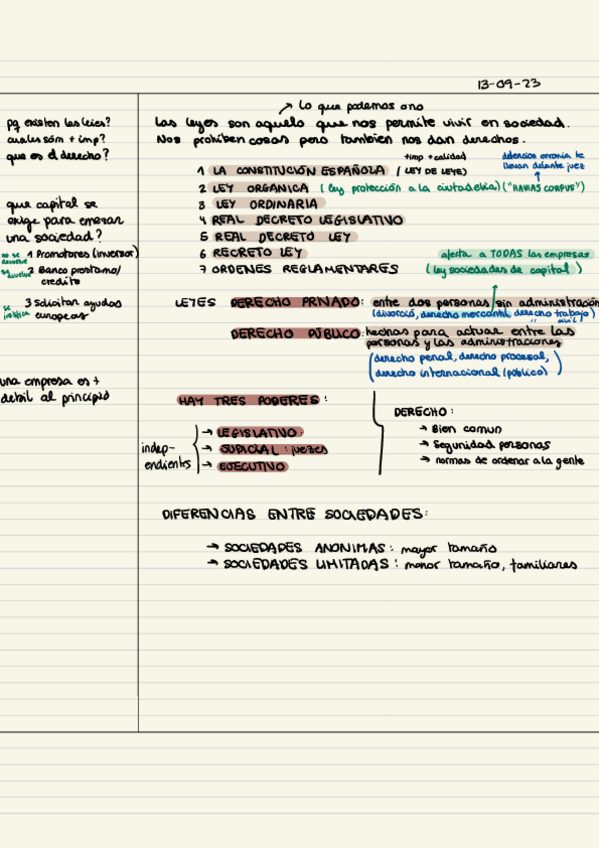 13-09-23
pq existen las leies?
cuales són + imp?
que es el derecho?
que capital se
exige para empezar
una sociedad?
no se devuelve 1 Promotores (inversor)
se devuelve 2 Banco prestamo/
credito
se justifica 3 solicitar ayudas
europeas
una empresa es +
debil al principio
→ Lo que podemos o no
Las leyes son aquello que nos permite vivir en sociedad.
Nos prohiben cosas pero tambien nos dan derechos.
+imp + calidad
1 LA CONSTITUCIÓN ESPAÑOLA / (LEY DE LEYE)
detencion erronia te
llevan delante juez
2 LEY ORGANICA (ley protección a la ciutadelia) ("HAVIAS CORPUS")
3 LEY ORDINARIA
4 REAL DECRETO LEGISLATIVO
5 REAL DECRETO LEY
6 RECRETO LEY
7 ORDENES REGLAMENTARES
afecta a TODAS las empresas
(ley sociedades de capital)
LEYES DERECHO PRIVADO: entre dos personas / sin administración
(divorció, derecho mercantil, derecho trabajo)
" civil
DERECHO PÚBLICO: hechas para actuar entre las
personas y las administraciones
(derecho penal, derecho procesal,
derecho internacional (público))
HAY TRES PODERES:
indep-
endientes
→ LEGISLATIVO:
→ JUDICIAL: juezes
→ EJECUTIVO
DERECHO:
→ Bien comun
→ Seguridad personas
→ normas de ordenar a la gente
DIFERENCIAS ENTRE SOCIEDADES:
→ SOCIEDADES ANONIMAS: mayor tamaño
→ SOCIEDADES LIMITADAS: menor tamaño, familiares